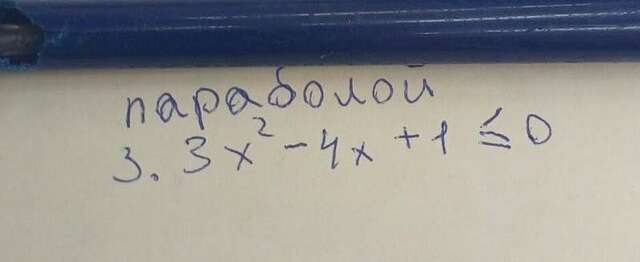 параболой
3. 3x² - 4x + 1 ≤ 0